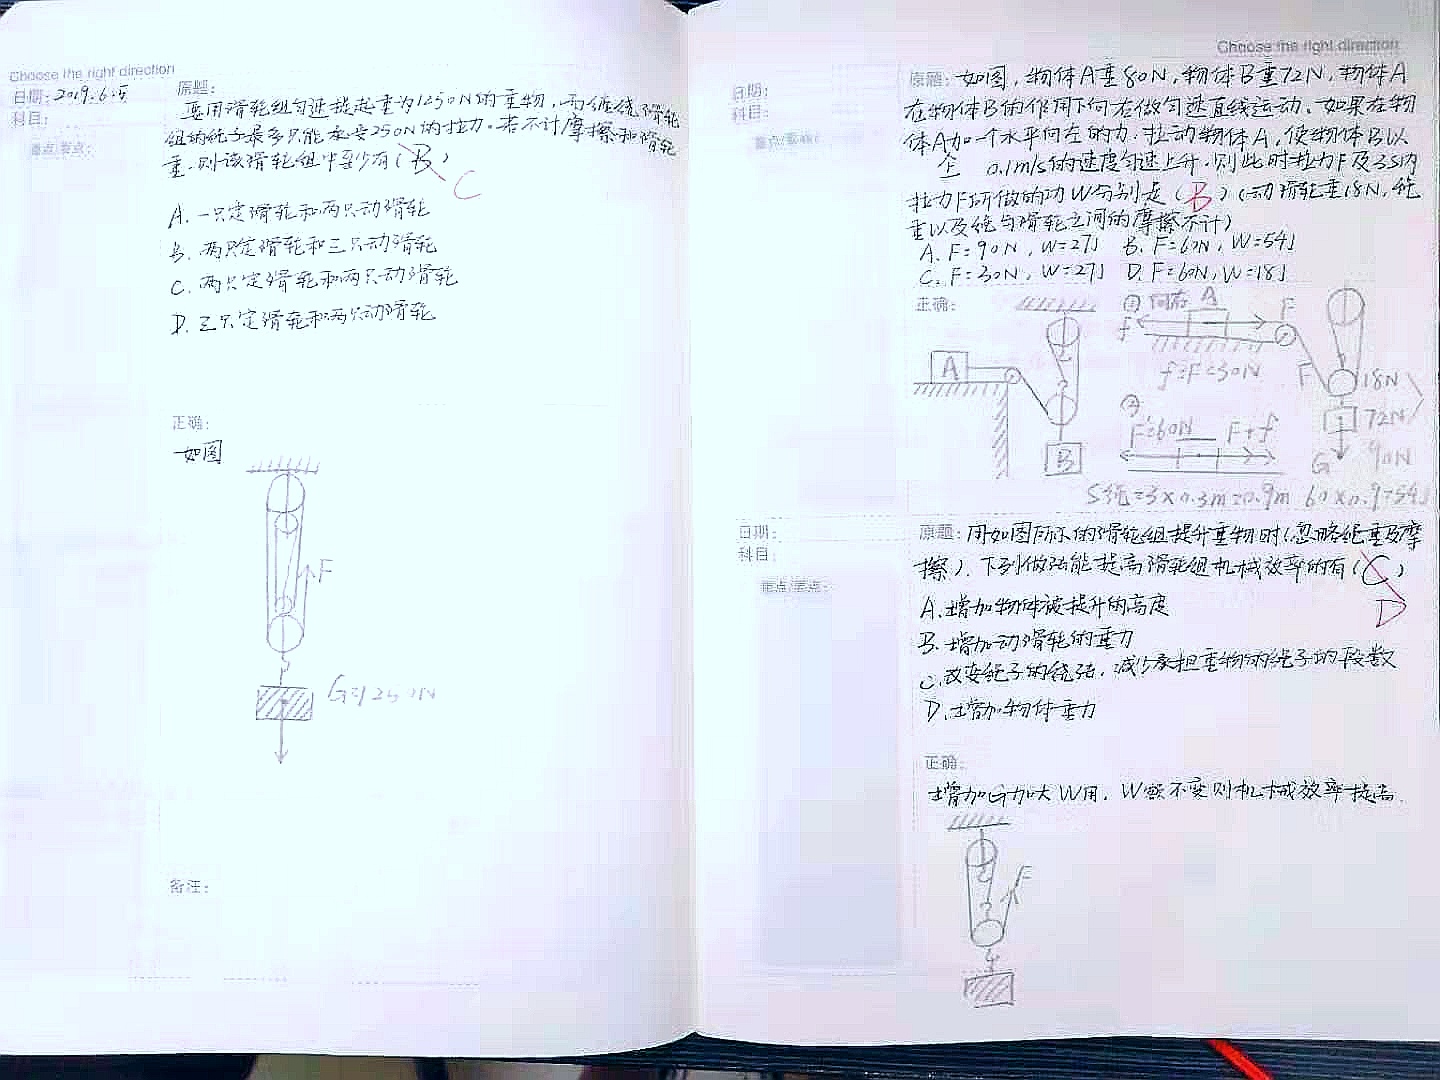 Choose the right direction
日期: 2019.6.5
科目:
重点/要点:
原题:
要用滑轮组匀速提起重为1250N的重物，而缠绕滑轮
组的绳子最多只能承受250N的拉力。若不计摩擦和滑轮
重，则该滑轮组中至少有(B)
C
A. 一只定滑轮和两只动滑轮
B. 两只定滑轮和三只动滑轮
C. 两只定滑轮和两只动滑轮
D. 三只定滑轮和两只动滑轮
正确:
如图
F
G=1250N
备注:
Choose the right direction
日期:
科目:
重点/要点:
原题: 如图，物体A重80N，物体B重72N，物体A
在物体B的作用下向右做匀速直线运动。如果在物
体A加一个水平向左的力，拉动物体A，使物体B以
0.1m/s的速度匀速上升，则此时拉力F及3S内
拉力F所做的功W分别是(B)(动滑轮重18N，绳
重以及绳与滑轮之间的摩擦不计)
A. F=90N，W=27J B. F=60N，W=54J
C. F=30N，W=27J D. F=60N，W=18J
正确:
① 向右 A F
f
f=F=30N
A
F 18N
72N
② F'=60N F+f
B
G 90N
S绳=3×0.3m=0.9m 60×0.9=54J
日期:
科目:
重点/要点:
原题: 用如图所示的滑轮组提升重物时(忽略绳重及摩
擦)，下列做法能提高滑轮组机械效率的有(C)
D
A. 增加物体被提升的高度
B. 增加动滑轮的重力
C. 改变绳子的绕法，减少承担重物的绳子的段数
D. 增加物体重力
正确:
增加G加大W用，W额不变则机械效率提高.
F